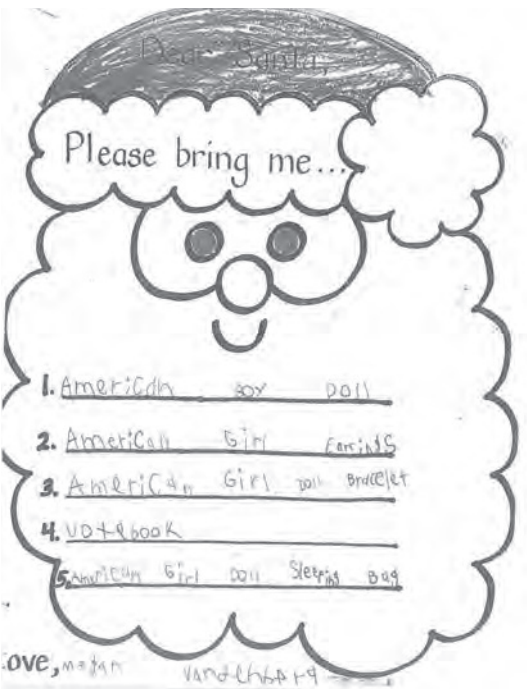 Dear Santa,
Please bring me...
1. American BOY DOll
2. American Girl Earrings
3. American Girl Doll Bracelet
4. notebook
5. American Girl Doll Sleeping Bag
ove, megan